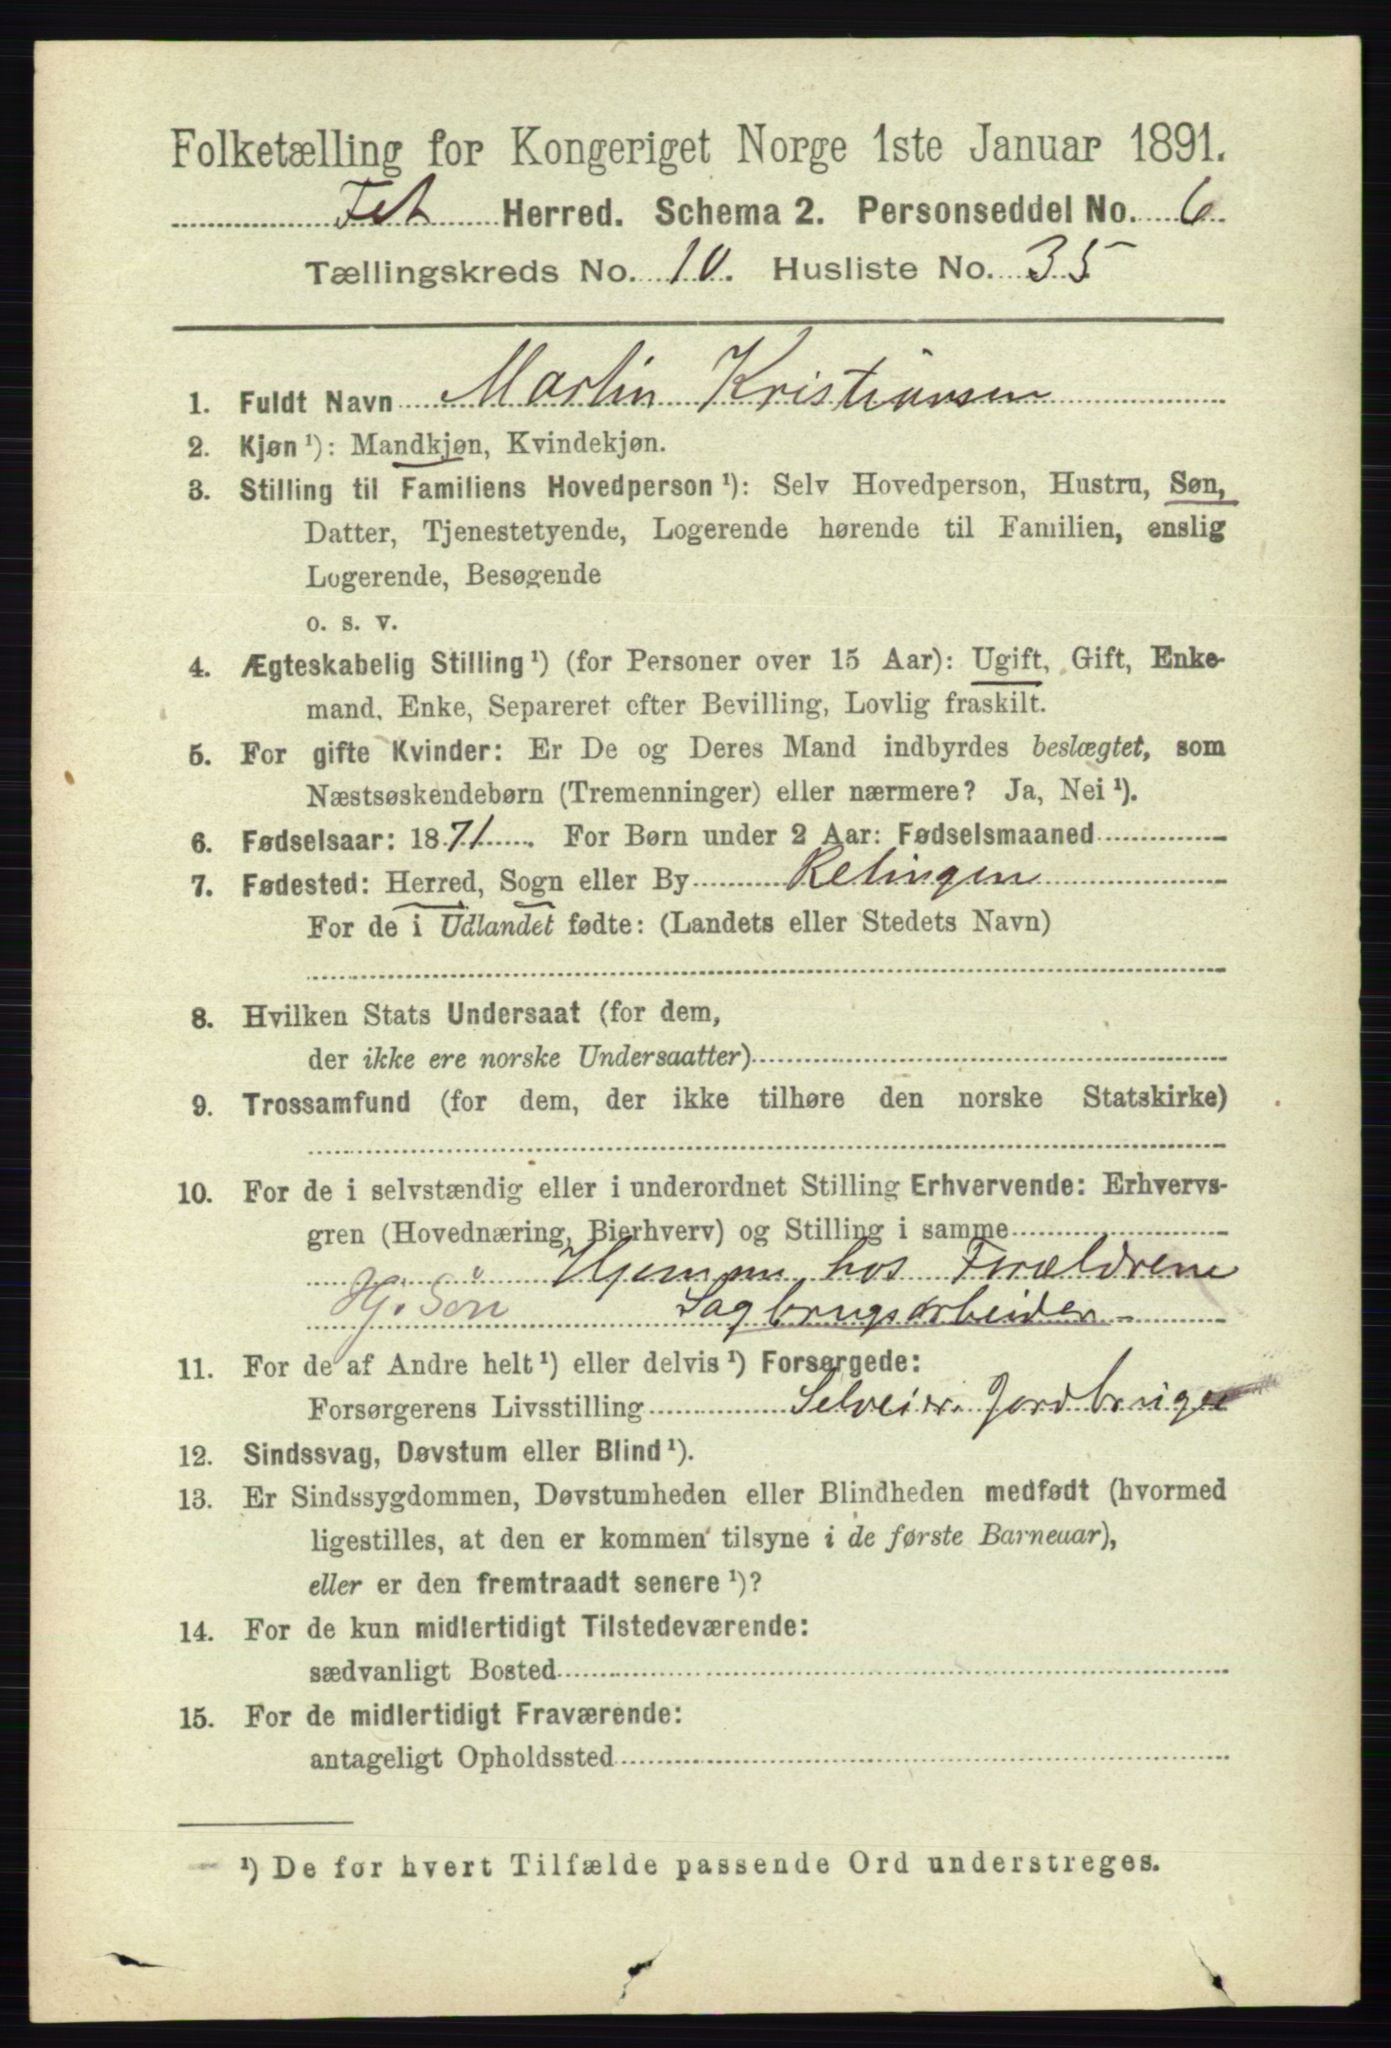 Folketælling for Kongeriget Norge 1ste Januar 1891.
Fet Herred. Schema 2. Personseddel No. 6
Tællingskreds No. 10. Husliste No. 35
1. Fuldt Navn Martin Kristiansen
2. Kjøn ¹): Mandkjøn, Kvindekjøn.
3. Stilling til Familiens Hovedperson ¹): Selv Hovedperson, Hustru, Søn,
Datter, Tjenestetyende, Logerende hørende til Familien, enslig
Logerende, Besøgende
o. s. v.
4. Ægteskabelig Stilling ¹) (for Personer over 15 Aar): Ugift, Gift, Enke-
mand, Enke, Separeret efter Bevilling, Lovlig fraskilt.
5. For gifte Kvinder: Er De og Deres Mand indbyrdes beslægtet, som
Næstsøskendebørn (Tremenninger) eller nærmere? Ja, Nei ¹).
6. Fødselsaar: 1871. For Børn under 2 Aar: Fødselsmaaned
7. Fødested: Herred, Sogn eller By Relingen
For de i Udlandet fødte: (Landets eller Stedets Navn)
8. Hvilken Stats Undersaat (for dem,
der ikke ere norske Undersaatter)
9. Trossamfund (for dem, der ikke tilhøre den norske Statskirke)
10. For de i selvstændig eller i underordnet Stilling Erhvervende: Erhvervs-
gren (Hovednæring, Bierhverv) og Stilling i samme
Hjemme hos Forældrene
Hj. Søn Sagbrugsarbeider
11. For de af Andre helt ¹) eller delvis ¹) Forsørgede:
Forsørgerens Livsstilling Selveier Jordbruger
12. Sindssvag, Døvstum eller Blind ¹).
13. Er Sindssygdommen, Døvstumheden eller Blindheden medfødt (hvormed
ligestilles, at den er kommen tilsyne i de første Barneaar),
eller er den fremtraadt senere ¹)?
14. For de kun midlertidigt Tilstedeværende:
sædvanligt Bosted
15. For de midlertidigt Fraværende:
antageligt Opholdssted
¹) De for hvert Tilfælde passende Ord understreges.